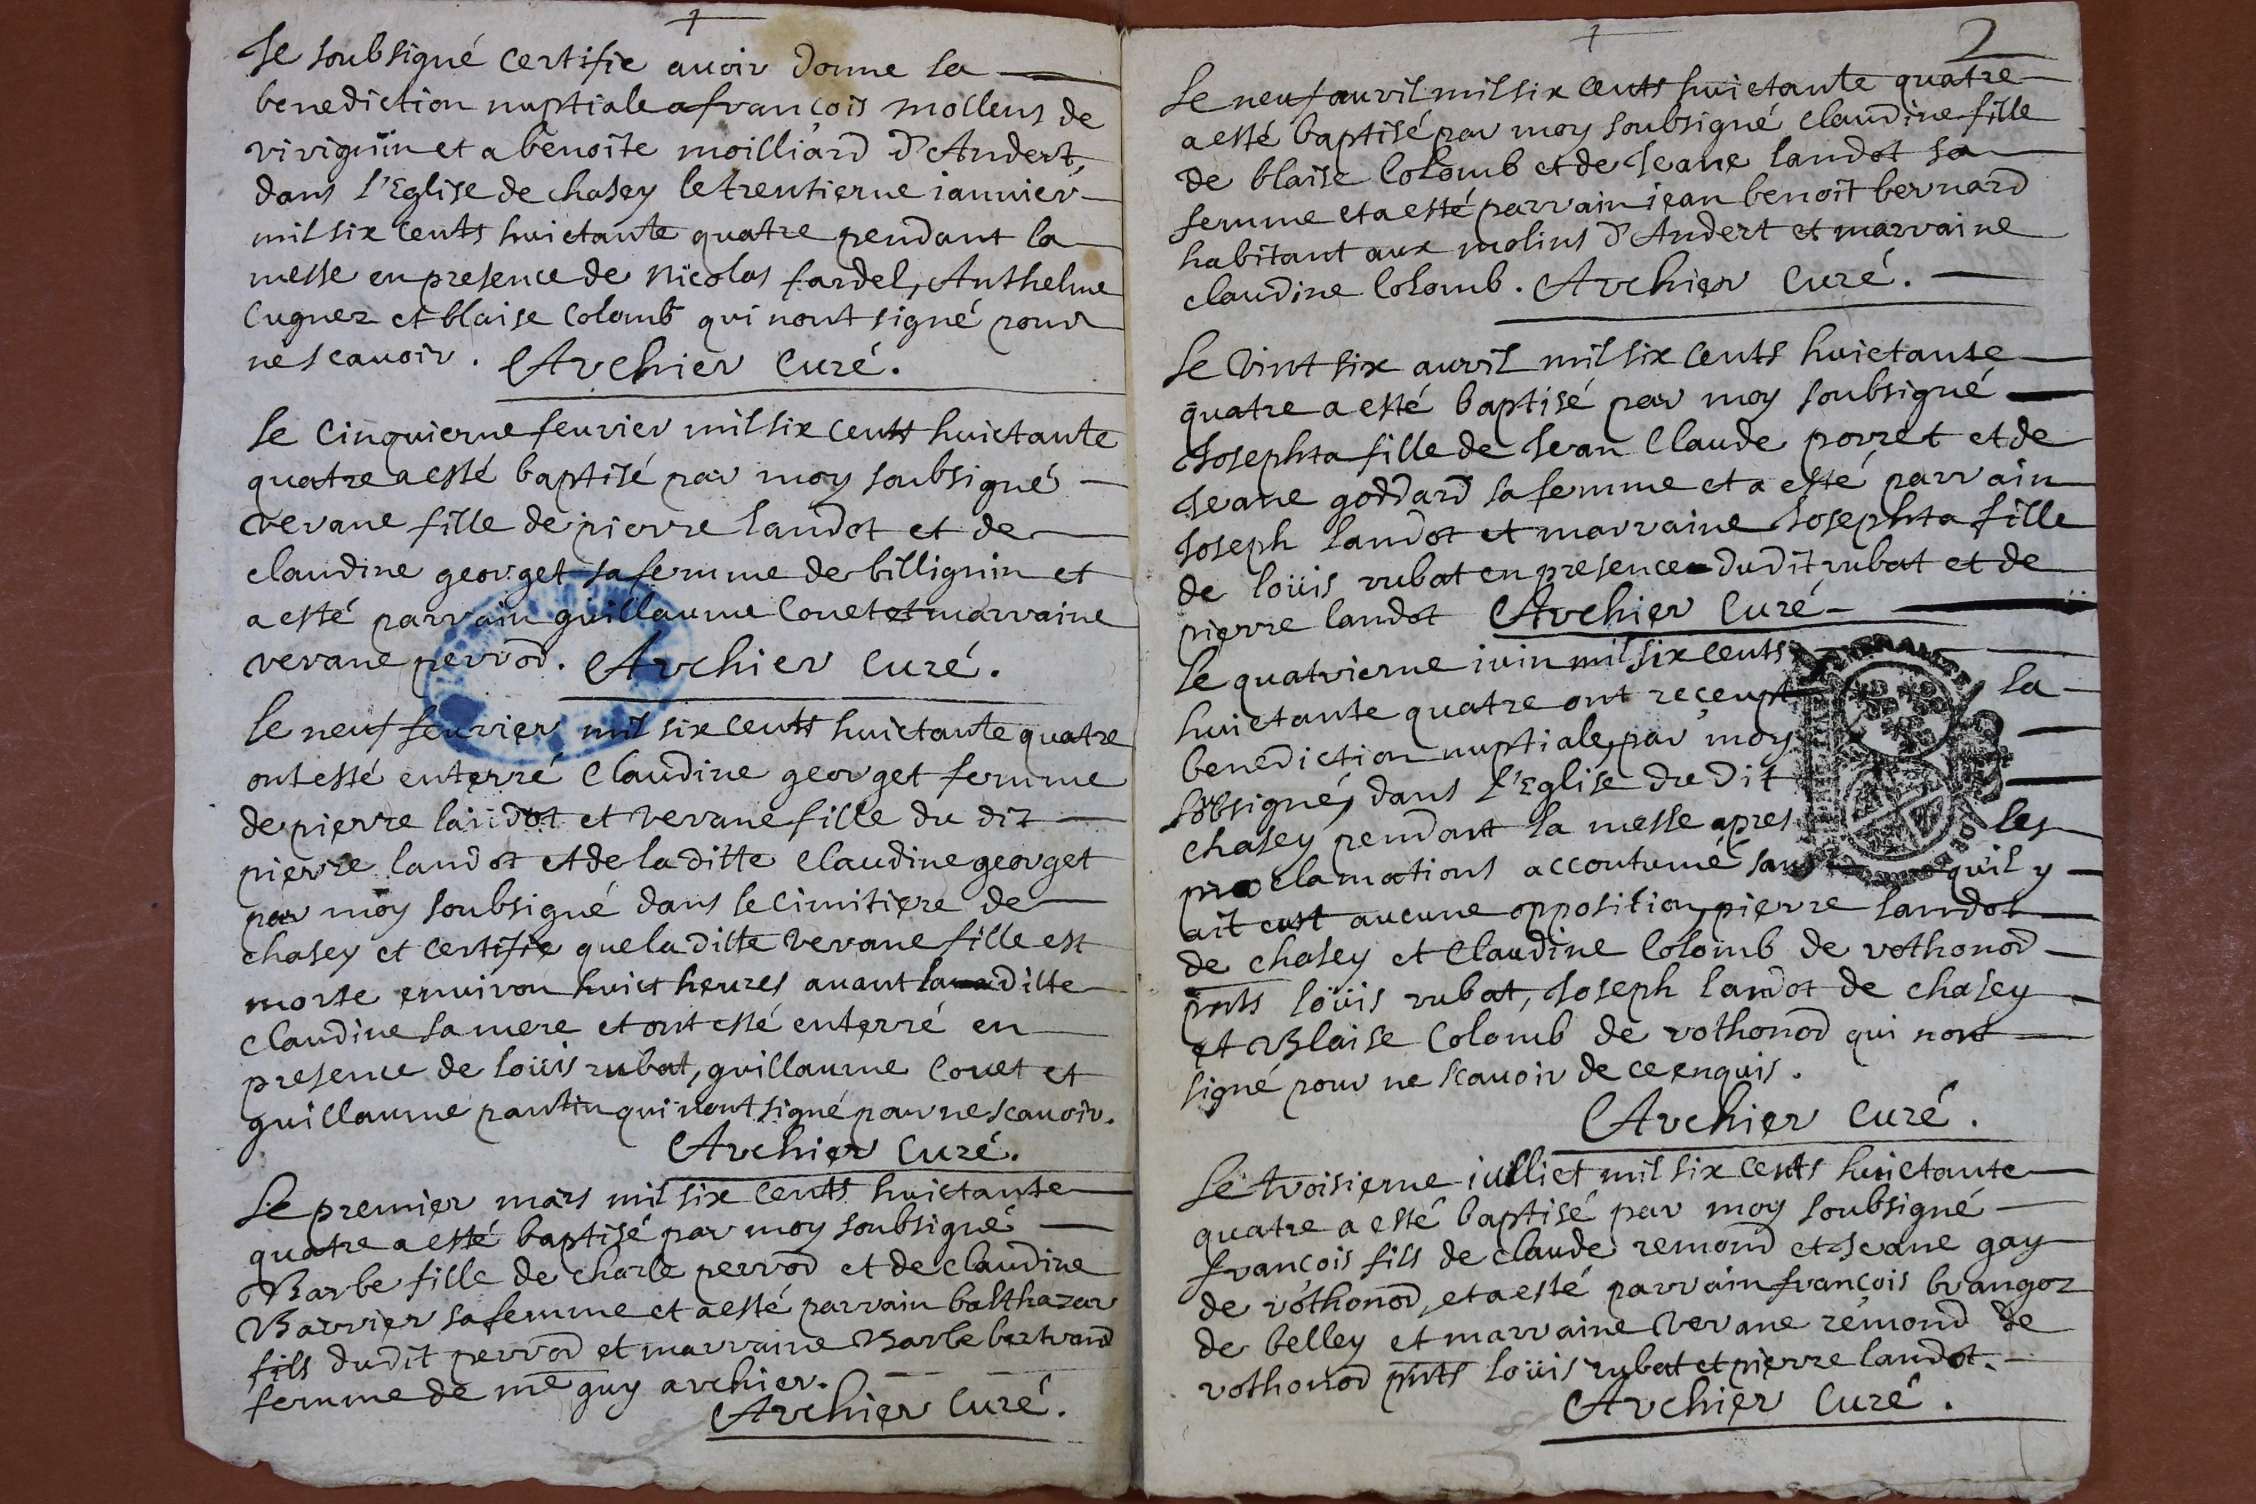 Je soubsigné certifie auoir donne la
benediction nuptiale a françois mollens de
virignin et a benoite moilliard d'Andert,
dans l'Eglise de chasey le trentieme ianuier
mil six cents huictante quatre pendant la
messe en presence de nicolas fardel, Anthelme
Cugnez et blaise Colomb qui nont signé pour
ne scauoir. Archier Curé.
Le Cinquieme feurier mil six cents huictante
quatre a esté baptisé par moy soubsigné
verane fille de pierre landot et de
claudine georget sa femme de billignin et
a esté parrain guillaume Couet et marraine
verane perrod. Archier Curé.
Le neuf feurier mil six cents huictante quatre
ont esté enterré Claudine georget femme
de pierre landot et verane fille du dit
pierre landot et de la ditte Claudine georget
par moy soubsigné dans le cimitiere de
chasey et certifie que la ditte verane fille est
morte enuiron huict heures auant la ditte
Claudine sa mere et ont esté enterré en
presence de loüis rubat, guillaume Couet et
guillaume pantin qui nont signé pour ne scauoir.
Archier Curé.
Le premier mars mil six cents huictante
quatre a esté baptisé par moy soubsigné
Barbe fille de charle perrod et de claudine
Barrier sa femme et a esté parrain balthazar
fils dudit perrod et marraine Barbe bertrand
femme de me guy archier.
Archier Curé.
2
Le neuf auril mil six cents huictante quatre
a esté baptisé par moy soubsigné Claudine fille
de blaise Colomb et de Jeane landot sa
femme et a esté parrain iean benoit bernard
habitant aux molins d'Andert et marraine
claudine Colomb. Archier Curé.
Le vint six auril mil six cents huictante
quatre a esté baptisé par moy soubsigné
Josephta fille de Jean Claude porret et de
Jeane goddard sa femme et a esté parrain
Joseph landot et marraine Josephta fille
de loüis rubat en presence dudit rubat et de
pierre landot Archier Curé
Le quatrieme iuin mil six cents
huictante quatre ont reçeupt la
benediction nuptiale, par moy
sobsigné, dans l'Eglise du dit
chasey pendant la messe apres les
proclamations accoutumé sans quil y
ait eust aucune opposition, pierre landot
de chasey et Claudine Colomb de vothonod
pnts loüis rubat, Joseph landot de chasey
et Blaise Colomb de vothonod qui nont
signé pour ne scauoir de ce enquis.
Archier Curé.
Le troisieme iulliet mil six cents huictante
quatre a esté baptisé par moy soubsigné
françois fils de claude remond et Jeane gay
de vothonod, et a esté parrain françois brangoz
de belley et marraine verane remond de
vothonod pnts loüis rubat et pierre landot.
Archier Curé.